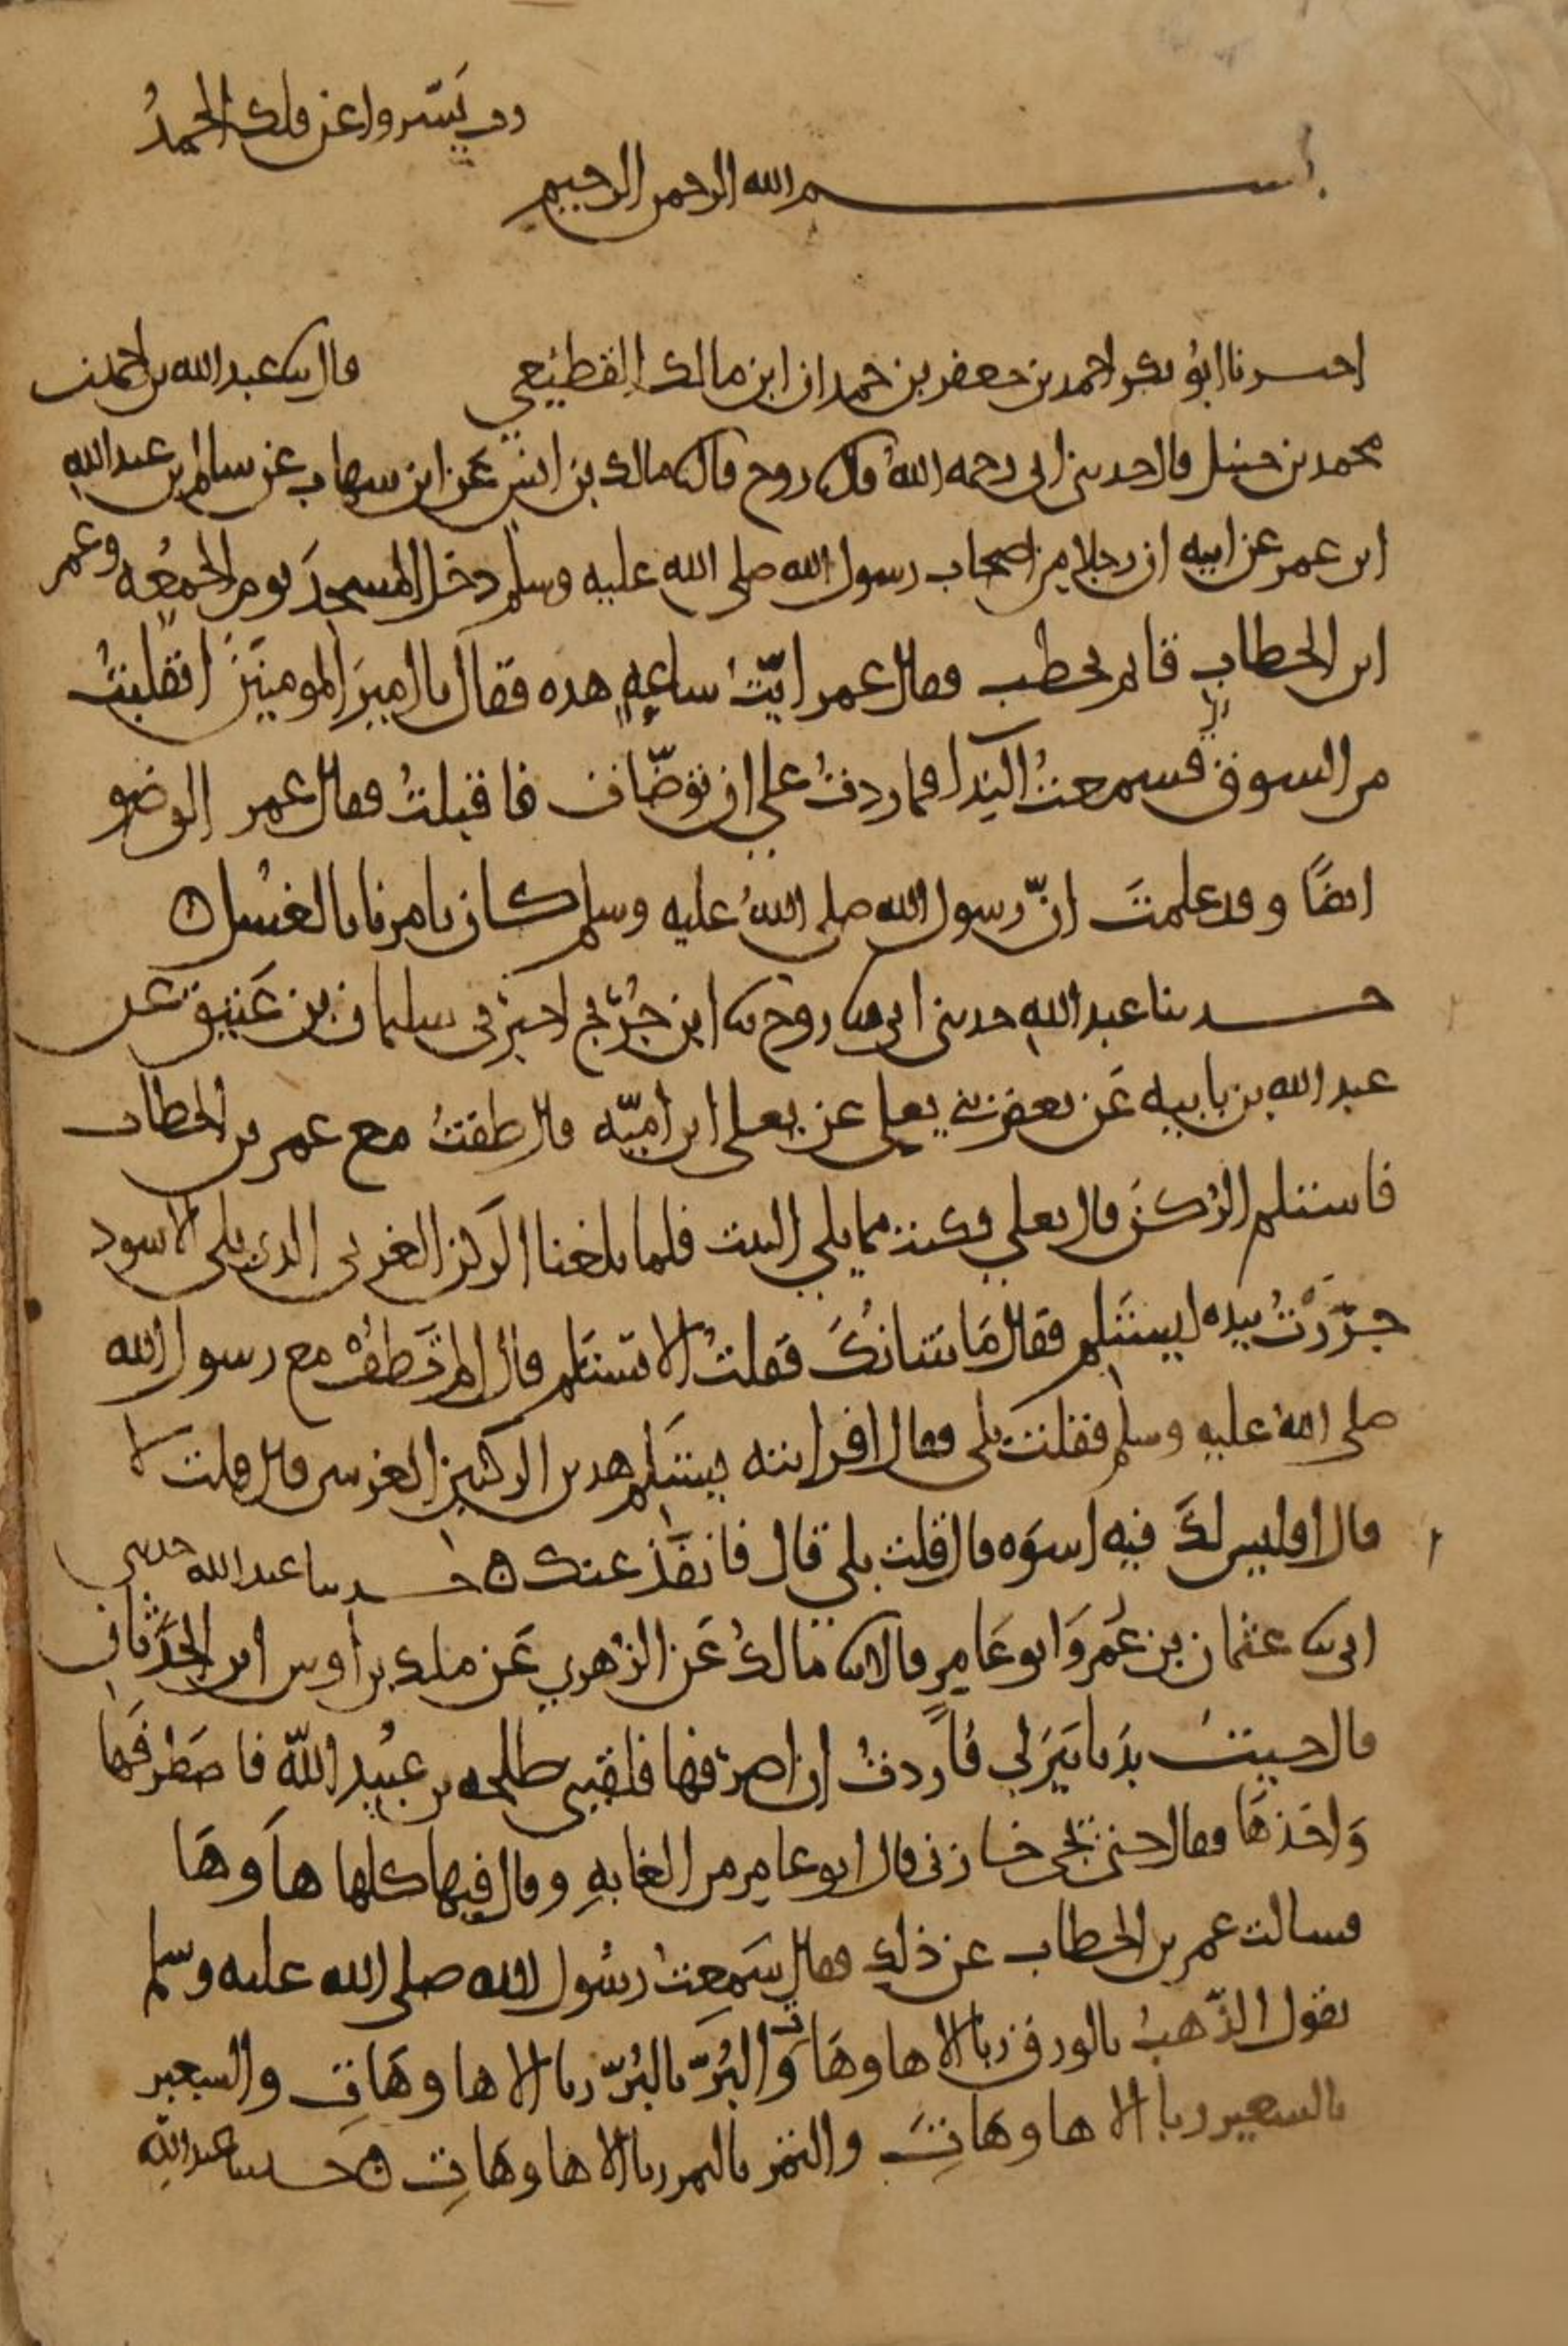 رب يَسّر واعن فلك الحمدُ
بسم الله الرحمن الرحيم
اخبرنا ابُو بكر احمد بن جعفر بن حمدان ابن مالك القطيْعي قال نا عبد الله بن احمد بن
محمد بن حنبل قال حدثني ابي رحمه اللهُ قال نا روح قال نا مالك بن انس عَن ابن شهاب عن سالم بن عبد الله
ابن عمر عن ابيه ان رجلا من اصحاب رسول الله صلى الله عليه وسلم دخل المسجدَ يوم الجمعُه وعمر
ابن الخطاب قايم يخطب فقال عمر ايّتُ ساعهٍ هذه فقال يا اميرَ المومنينَ انقلبتُ
من السوق فسمعتُ النِدا فما زدتُ على ان توضّات فاقبلتُ فقال عمر الوضو
ايضًا وقد علمتَ انّ رسول الله صلى اللهُ عليه وسلم كان يامرنا بالغسُل ه
حدثنا عبد اللهِ حدثني ابي نا روح نا ابن جُرَيج اخبرَني سليمان بن عَتيق عن
عبد الله بن بابيه عَن بعض بني يعلى عن يعلى ابن اميّه قال طفتُ مع عمر بن الخطاب
فاستلم الرُكنَ قال يعلي وكنت مما يلي البيت فلما بلغنا الرَكن الغربي الذي يلي الاسود
جرّرْتُ بيده ليستَلم فقال مَا شَانُكَ فقلتُ الا تستلم قال الم تَطُفْ مع رسول الله
صلى اللهُ عليه وسلم فقلتُ بلى فقال افرايته يستَلم هذين الركنين الغربيين قال قلت لا
قال افليس لكَ فيه اسوَه قال قلت بلي قال فانفُذ عنك ه حدثنا عبد الله حدثني
ابي نا عثمان بن عُمَر وَابو عَامِرٍ قالا نا مالكُ عَن الزهري عَن ملك بن اوس ابن الحَدَثان
قال جيتُ بدَنانيَر لي فاَردتُ ان اصرفها فلقيني طلحه بن عُبَيد اللّه فاصَطرفَها
وَاخَذهَا فقال حتى تجي خازني قال ابو عامر من الغابهِ وقال فيها كلها هاَ وهَا
فسالت عمر بن الخطاب عن ذلك فقال سَمعتُ رسُول الله صلى الله عليه وسلم
يقول الذّهبُ بالورق ربا الا ها وهَات وَالبُرّ بالبُرّ ربا الا ها وهَاتِ والشعير
بالشعير ربا الا ها وهَاتِ والتمَر بالتمر ربا الا ها وهَاتِ ه حدثنا عبد الله